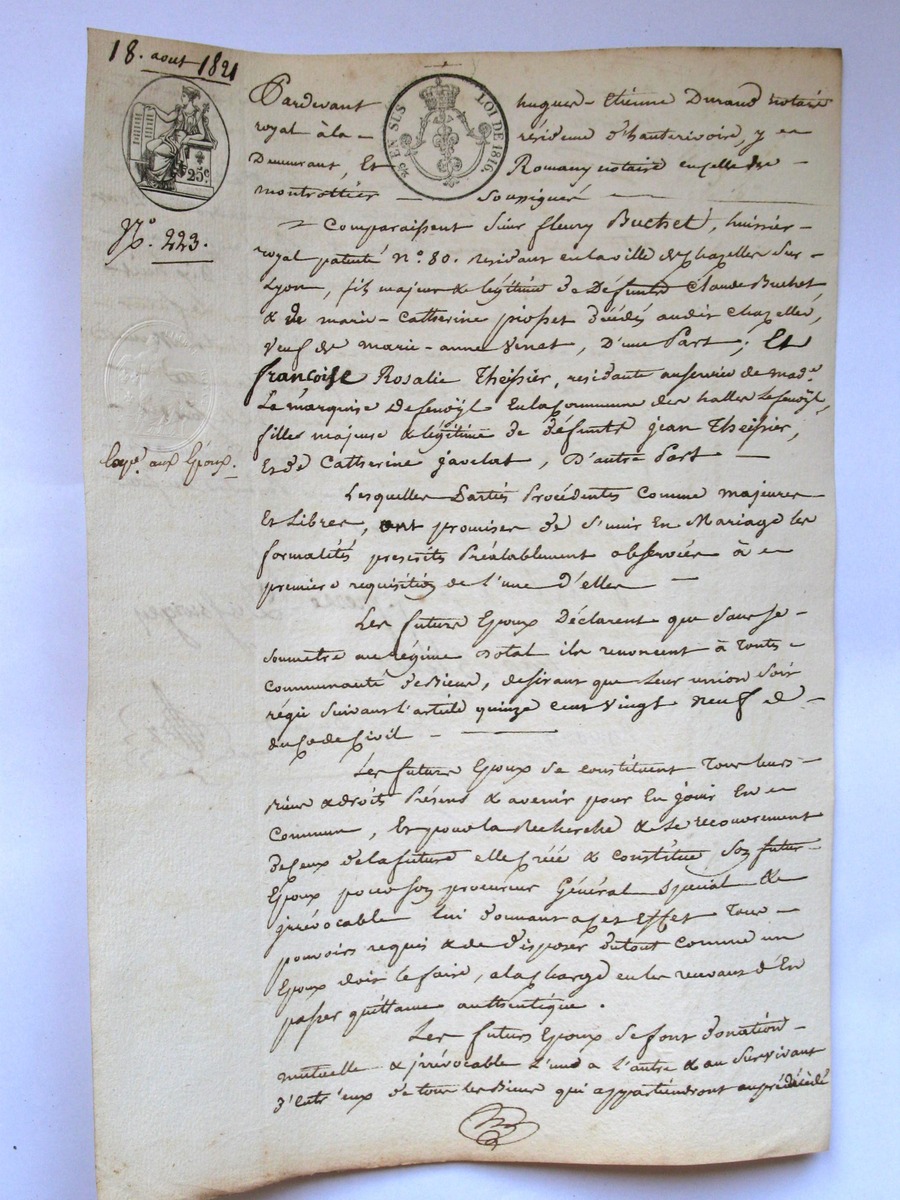 18. aout 1821
25 EN SUS
LOI DE 1816.
25c
Pardevant hugues-Etienne Durand notaire
royal à la résidence d'hauterivoire, y
Demeurant, Et Romany notaire en celle de
montrottier soussignés
N.º 223.
Comparaissent Sieur fleury Buchet, huissier
royal patenté nº 80. residant en la ville de Chazelles sur
Lyon, fils majeur & légitime de Défunts Claude Buchet
& de marie-Catherine piosset décédés audit Chazelles,
veuf de marie-anne Venet, D'une Part; Et
françoise Rosalie Theissier, residante au service de mad.e
La marquise De
en la Commune des halles
fille majeure & légitime de défunts jean Theissier,
Et de Catherine javelot, D'autre Part
aux Epoux.
Lesquelles Parties Procédentes comme majeures
Et Libres, ont promises de s'unir En Mariage les
formalités prescrites Préalablement observées à
premiere requisition de l'une d'elles
Les futurs Epoux Déclarent que sans se
soumetre au régime Dotal ils renoncent à Toute
Communauté de Biens, desirant que Leur union soit
régie suivant l'article quinze cent vingt neuf
du Code Civil
Les futurs Epoux se constituent Tous leurs
Biens & droits Présens & avenir pour En jouir En
Commun, Et pour la Recherche & Le recouvrement
de Ceux de la future elle Créé & constitue Son futur
Epoux pour son procureur Général special &
jrrévocable lui donnant à cet Effet Tous
pouvoirs requis & de disposer du tout comme un
Epoux doit le faire, a la charge en les recevant d'En
passer quittance authentique.
Les futurs Epoux se font donation
mutuelle & jrrévocable L'un a L'autre & au Survivant
d'entr'eux de tous les Biens qui appartiendront au prédécédé